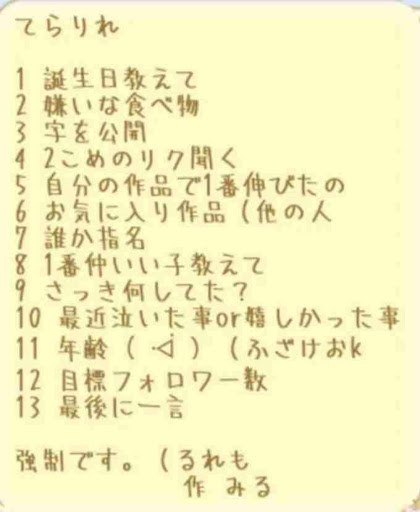 てらりれ
1 誕生日教えて
2 嫌いな食べ物
3 字を公開
4 2こめのリク聞く
5 自分の作品で1番伸びたの
6 お気に入り作品(他の人
7 誰か指名
8 1番仲いい子教えて
9 さっき何してた?
10 最近泣いた事or嬉しかった事
11 年齢( ᐛ )(ふざけおk
12 目標フォロワー数
13 最後に一言
強制です。(るれも
作 みる